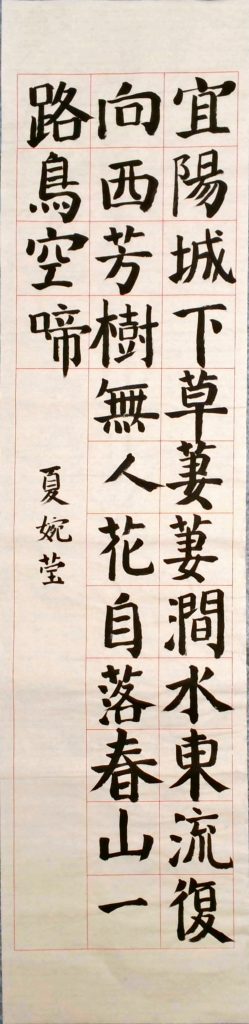 宜陽城下草萋萋澗水東流復
向西芳樹無人花自落春山一
路鳥空啼
夏婉莹